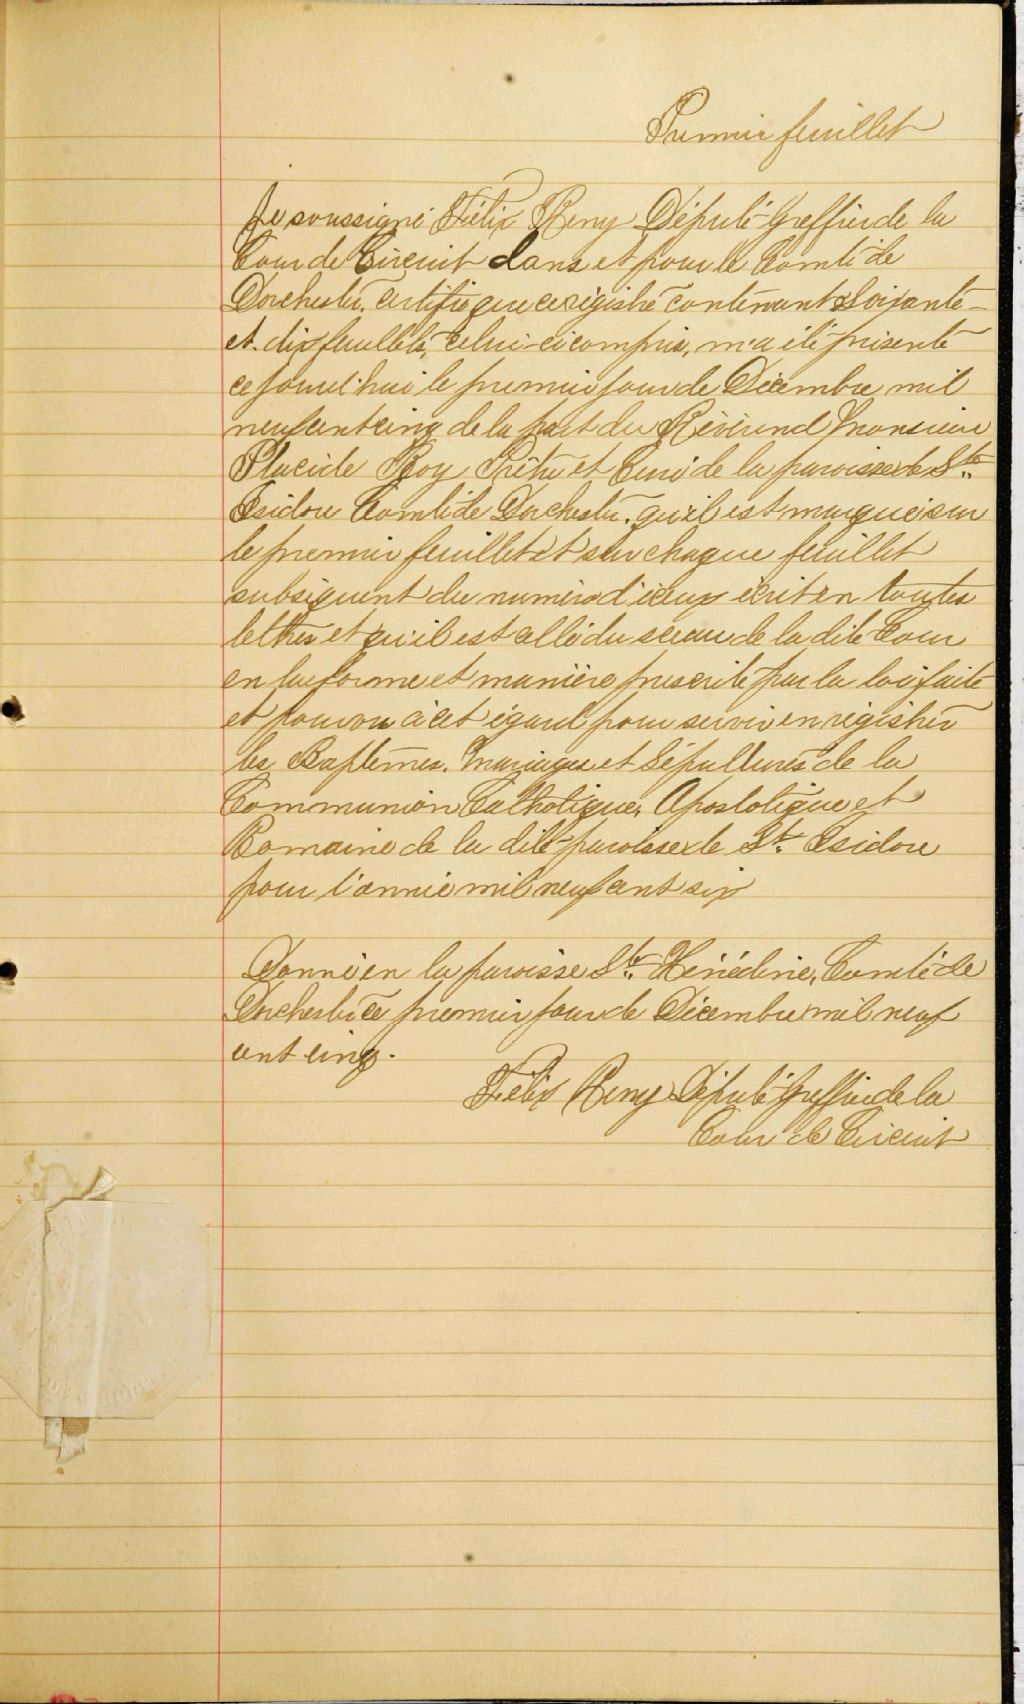 Premier feuillet
Je soussigné Félix Remy Député-Greffier de la
Cour de Circuit dans et pour le Comté de
Dorchester, certifie que ce régistre contenant soixante-
et-dix feuillets, celui-ci compris, m'a été présenté
ce jourd'hui le premier jour de Décembre mil
neuf cent cinq de la part du Révérend Monsieur
Placide Roy Prêtre et Curé de la paroisse de St.
Isidore Comté de Dorchester, qu'il est marqué sur
le premier feuillet et sur chaque feuillet
subséquent du numéro d'iceux écrit en toutes
lettres et qu'il est scellé du sceau de la dite Cour
en la forme et manière prescrite par la loi faite
et pourvu à cet égard pour servir en régistrer
les Baptêmes, Mariages et Sépultures de la
Communion Catholique, Apostolique et
Romaine de la dite paroisse de St. Isidore
pour l'année mil neuf cent six
Donné en la paroisse Ste. Hénédine, Comté de
Dorchester ce premier jour de Décembre mil neuf
cent cinq.
Félix Remy Député-Greffier de la
Cour de Circuit